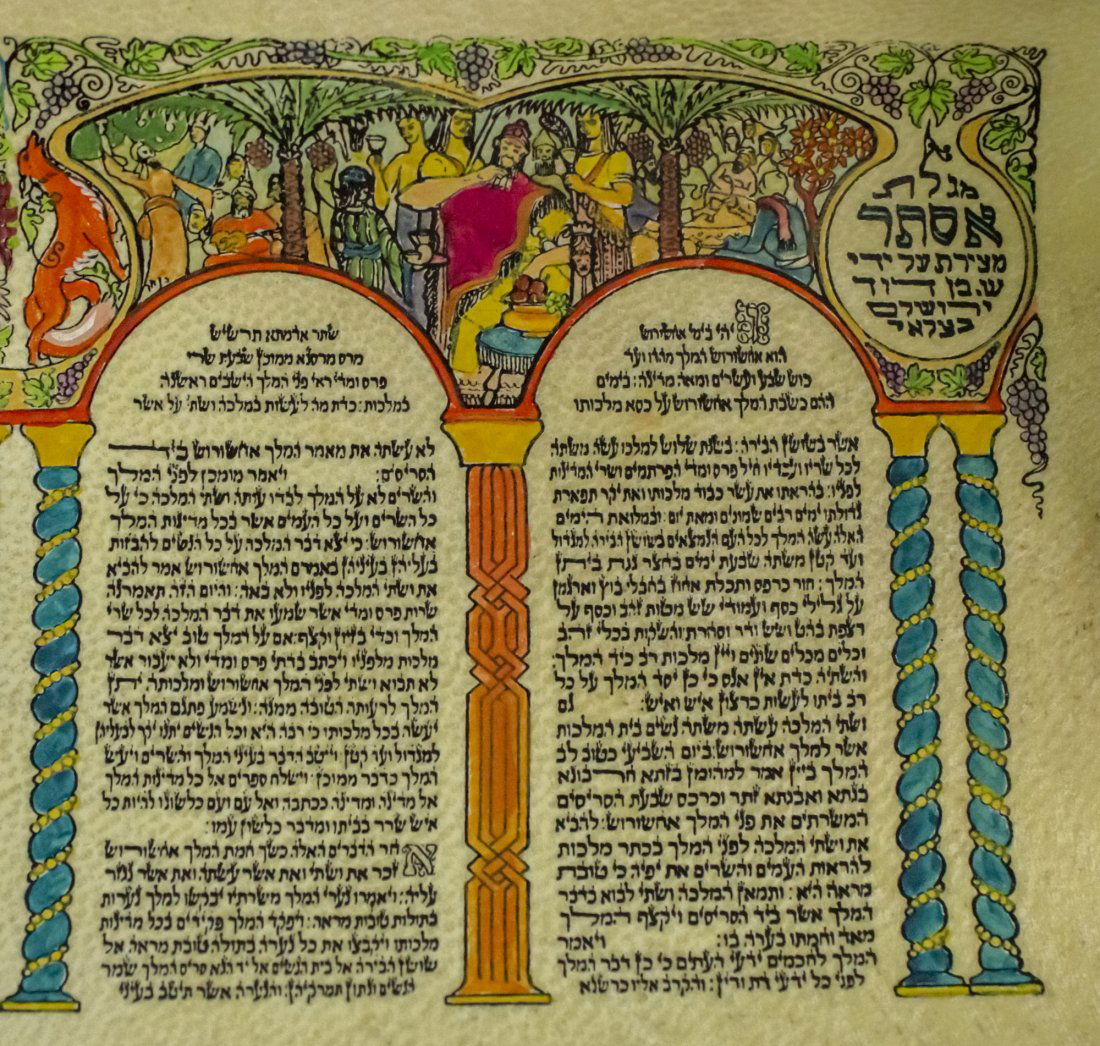 מגלת
אסתר
מצירת על ידי
ש. בן דוד
ירושלים
בצלאל
ויהי בימי אחשורוש
הוא אחשורוש המלך מהדו ועד
כוש שבע ועשרים ומאה מדינה: בימים
ההם כשבת המלך אחשורוש על כסא מלכותו
אשר בשושן הבירה: בשנת שלוש למלכו עשה משתה
לכל שריו ועבדיו חיל פרס ומדי הפרתמים ושרי המדינות
לפניו: בהראתו את עשר כבוד מלכותו ואת יקר תפארת
גדולתו ימים רבים שמונים ומאת יום: ובמלואת הימים
האלה עשה המלך לכל העם הנמצאים בשושן הבירה למגדול
ועד קטן משתה שבעת ימים בחצר גנת ביתן
המלך: חור כרפס ותכלת אחוז בחבלי בוץ וארגמן
על גלילי כסף ועמודי שש מטות זהב וכסף על
רצפת בהט ושש ודר וסחרת: והשקות בכלי זהב
וכלים מכלים שונים ויין מלכות רב כיד המלך:
והשתיה כדת אין אנס כי כן יסד המלך על כל
רב ביתו לעשות כרצון איש ואיש: גם
ושתי המלכה עשתה משתה נשים בית המלכות
אשר למלך אחשורוש: ביום השביעי כטוב לב
המלך ביין אמר למהומן בזתא חרבונא
בגתא ואבגתא זתר וכרכס שבעת הסריסים
המשרתים את פני המלך אחשורוש: להביא
את ושתי המלכה לפני המלך בכתר מלכות
להראות העמים והשרים את יפיה כי טובת
מראה היא: ותמאן המלכה ושתי לבוא בדבר
המלך אשר ביד הסריסים ויקצף המלך
מאד וחמתו בערה בו: ויאמר
המלך לחכמים ידעי העתים כי כן דבר המלך
לפני כל ידעי דת ודין: והקרב אליו כרשנא
שתר אדמתא תרשיש
מרס מרסנא ממוכן שבעת שרי
פרס ומדי ראי פני המלך הישבים ראשנה
במלכות: כדת מה לעשות במלכה ושתי על אשר
לא עשתה את מאמר המלך אחשורוש ביד
הסריסים: ויאמר מומכן לפני המלך
והשרים לא על המלך לבדו עותה ושתי המלכה כי על
כל השרים ועל כל העמים אשר בכל מדינות המלך
אחשורוש: כי יצא דבר המלכה על כל הנשים להבזות
בעליהן בעיניהן באמרם המלך אחשורוש אמר להביא
את ושתי המלכה לפניו ולא באה: והיום הזה תאמרנה
שרות פרס ומדי אשר שמעו את דבר המלכה לכל שרי
המלך וכדי בזיון וקצף: אם על המלך טוב יצא דבר
מלכות מלפניו ויכתב בדתי פרס ומדי ולא יעבור אשר
לא תבוא ושתי לפני המלך אחשורוש ומלכותה יתן
המלך לרעותה הטובה ממנה: ונשמע פתגם המלך אשר
יעשה בכל מלכותו כי רבה היא וכל הנשים יתנו יקר לבעליהן
למגדול ועד קטן: וייטב הדבר בעיני המלך והשרים ויעש
המלך כדבר ממוכן: וישלח ספרים אל כל מדינות המלך
אל מדינה ומדינה ככתבה ואל עם ועם כלשונו להיות כל
איש שרר בביתו ומדבר כלשון עמו:
אחר הדברים האלה כשך חמת המלך אחשורוש
זכר את ושתי ואת אשר עשתה ואת אשר נגזר
עליה: ויאמרו נערי המלך משרתיו יבקשו למלך נערות
בתולות טובות מראה: ויפקד המלך פקידים בכל מדינות
מלכותו ויקבצו את כל נערה בתולה טובת מראה אל
שושן הבירה אל בית הנשים אל יד הגא סריס המלך שמר
הנשים ונתון תמרקיהן: והנערה אשר תיטב בעיני